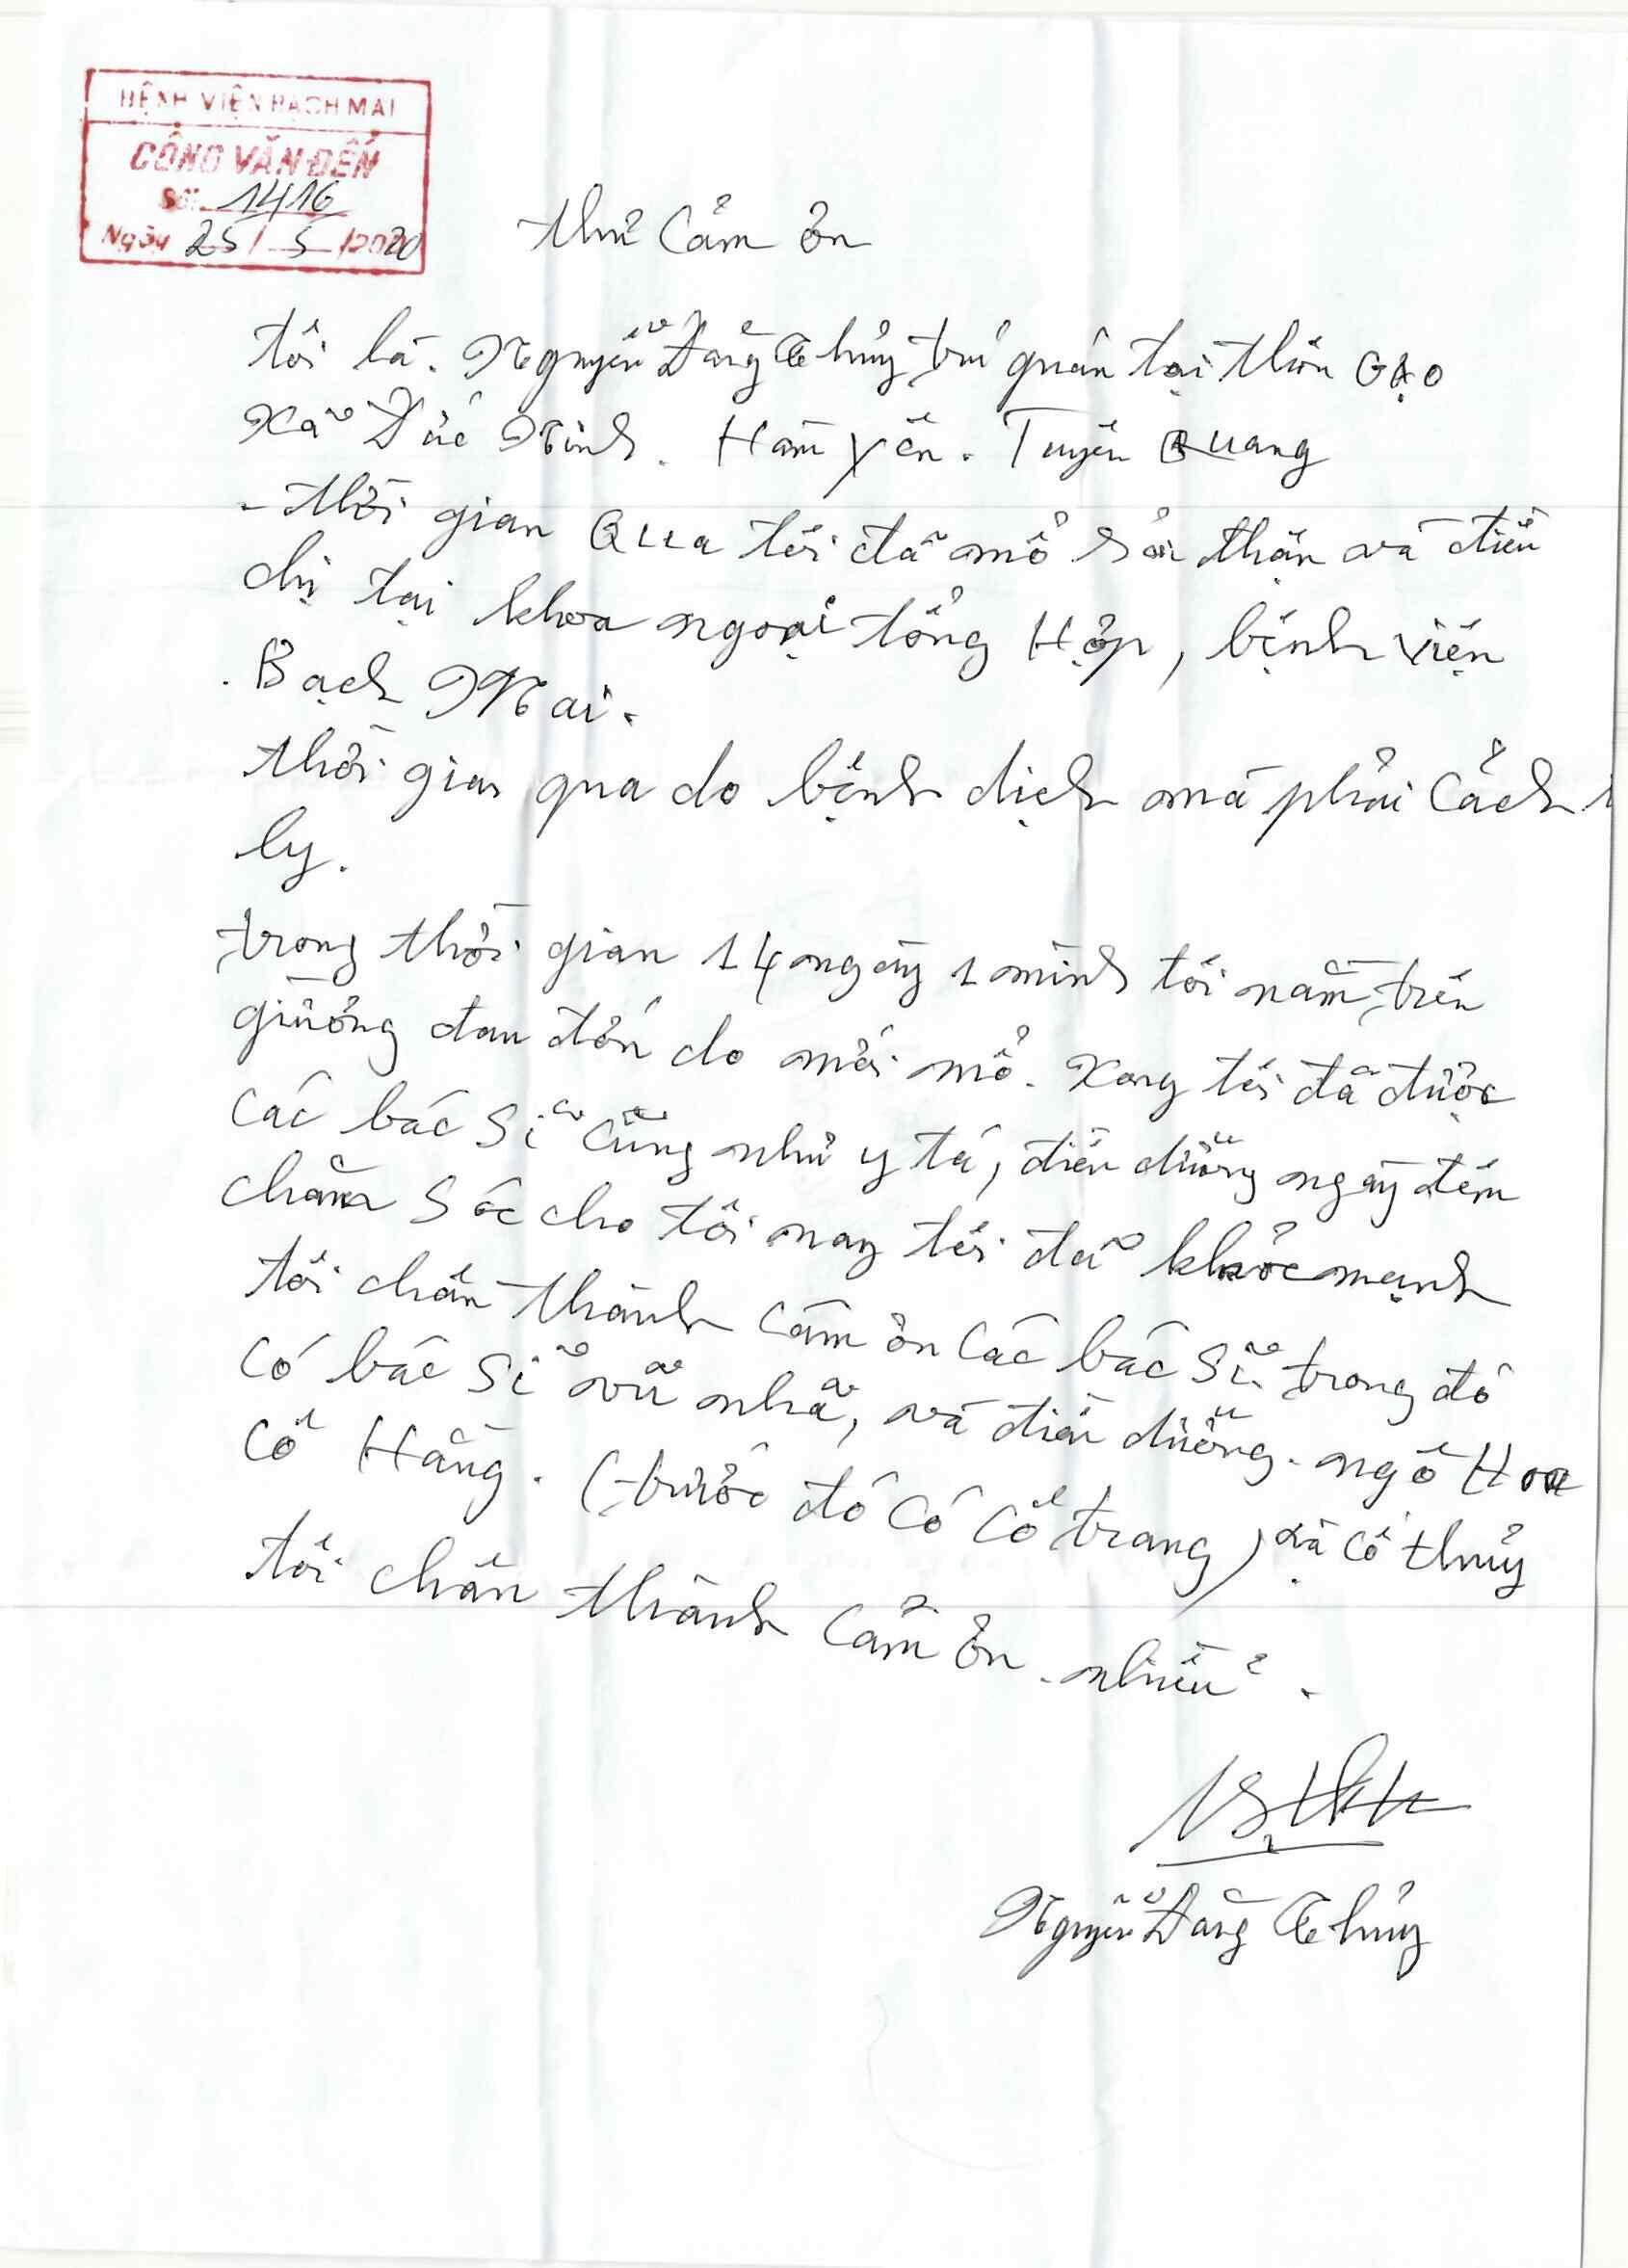 BỆNH VIỆN BẠCH MAI
CÔNG VĂN ĐẾN
Số: 1416
Ngày 25 / 5 /2020
thư Cảm ơn
tôi là. Nguyễn Đăng Thủy trú quán tại thôn Gạo
Xã Đức Ninh. Hàm Yên. Tuyên Quang
- thời gian Qua tôi đã mổ sỏi thận và điều
chị tại khoa ngoại tổng Hợp, bệnh viện
Bạch Mai.
thời gian qua do bệnh dịch mà phải Cách
ly.
trong thời gian 14 ngày 1 mình tôi nằm trên
giường đau đớn do mới mổ. Xong tôi đã được
Các bác Sĩ cũng như y tá, điều dưỡng ngày đêm
chăm Sóc cho tôi nay tôi đã khỏe mạnh
tôi chân thành Cảm ơn Các bác Sĩ. trong đó
Có bác Sĩ vũ nhã, và điều dưỡng. ngô Hoa
Cô Hằng. (trước đó Có Cô trang) và Cô thủy
tôi chân thành Cảm ơn nhiều.
Nguyễn Đăng Thủy